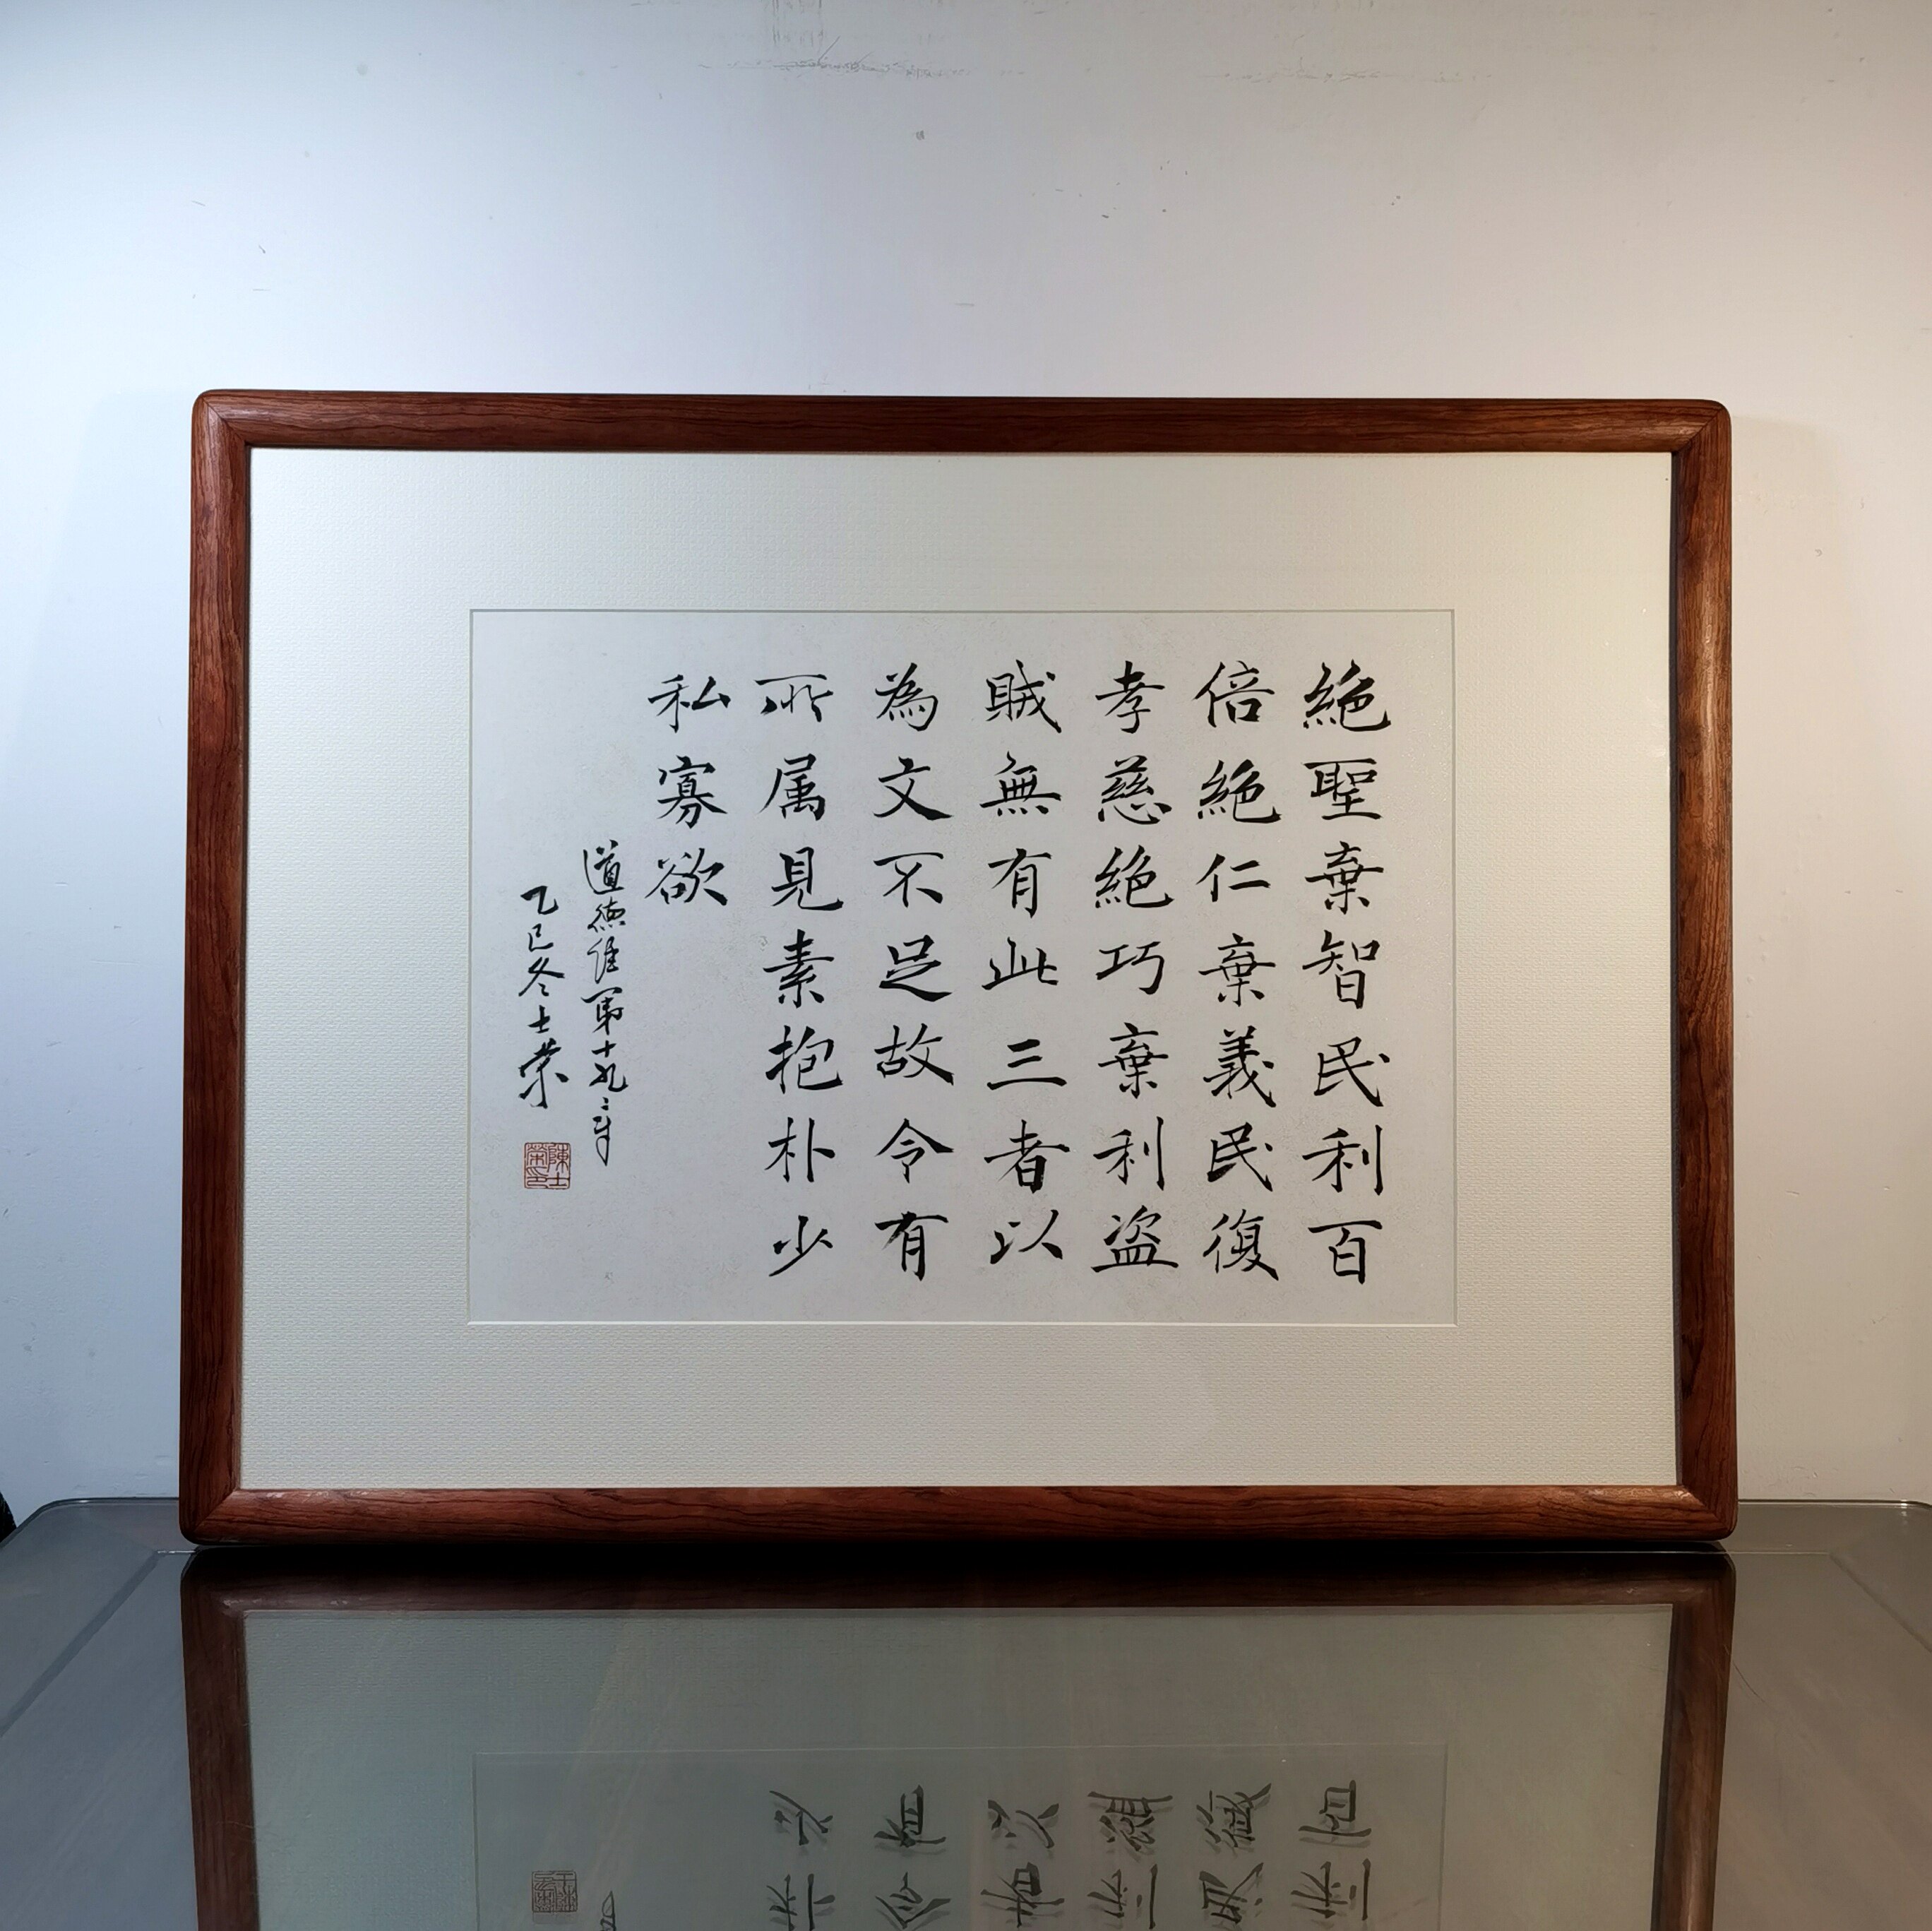 絕聖棄智民利百
倍絕仁棄義民復
孝慈絕巧棄利盜
賊無有此三者以
為文不足故令有
所属見素抱朴少
私寡欲
道德經第十九章
乙巳冬士榮
陳士榮印